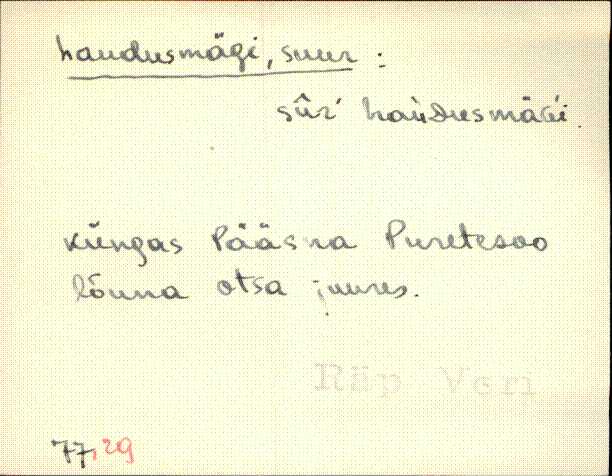 haudusmägi, suur :
sûr' haudusmäǵi.
küngas Pääsna Puretesoo
lõuna otsa juures.
Räp Veri
77,29